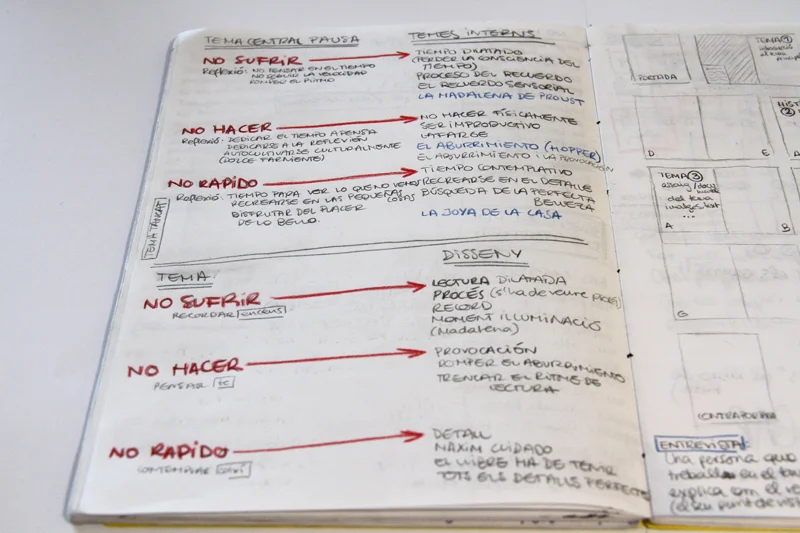 TEMA CENTRAL PAUSA
TEMES INTERNS
NO SUFRIR
REFLEXIÓ: NO PENSAR EN EL TIEMPO
NO SEGUIR LA VELOCIDAD
ROMPER EL RITMO
TIEMPO DILATADO
(PERDER LA CONSCIENCIA DEL
TIEMPO)
PROCESO DEL RECUERDO
EL RECUERDO SENSORIAL
LA MADALENA DE PROUST
NO HACER
REFLEXIÓ: DEDICAR EL TIEMPO A PENSA
DEDICARSE A LA REFLEXIÓN
AUTOCULTIVARSE CULTURALMENTE
(DOLCE FARNIENTE)
NO HACER FÍSICAMENTE
SER IMPRODUCTIVO
LAFARGE
EL ABURRIMIENTO (HOPPER)
EL ABURRIMIENTO I LA PROVOCACIÓN
NO RAPIDO
REFLEXIÓ: TIEMPO PARA VER LO QUE NO VEMOS
RECREARSE EN LAS PEQUEÑAS
COSAS
DISFRUTAR DEL PLACER
DE LO BELLO.
TIEMPO CONTEMPLATIVO
RECREARSE EN EL DETALLE
BÚSQUEDA DE LA PERFECTA
BELLEZA
LA JOYA DE LA CASA
TEMA TANCAT
TEMA
DISSENY
NO SUFRIR
RECORDAR
LECTURA DILATADA
PROCÉS (s'ha de veure procés)
RECORD
MOMENT ILLUMINACIÓ
(Madalena)
NO HACER
PENSAR
PROVOCACIÓN
ROMPER EL ABURRIMIENTO
TRENCAR EL RITME DE
LECTURA
NO RAPIDO
CONTEMPLAR
DETALL
MÀXIM CUIDADO
EL LLIBRE HA DE TENIR
TOTS ELS DETALLS PERFECTE
PORTADA
TEMA 1
D
E
2
TEMA 3
del tema
...
A
B
G
CONTRAPORTADA
ENTREVISTA:
Una persona que
treballa en el
explica com el
(el seu punt de vist